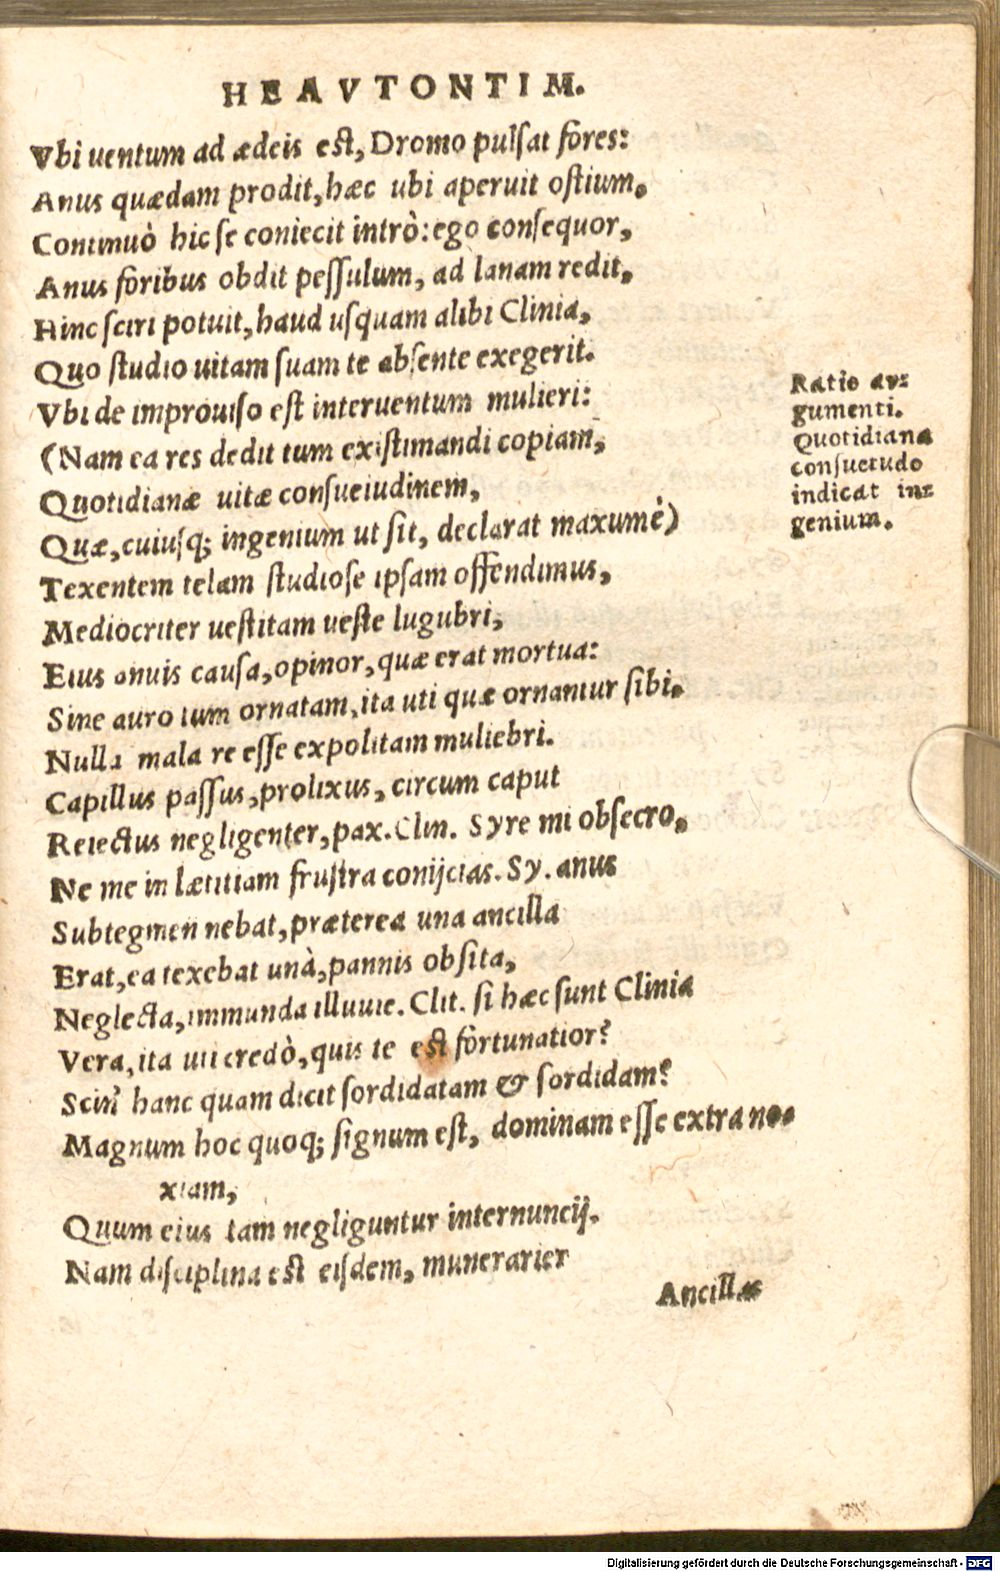 HEAVTONTIM.
Vbi uentum ad ædeis est, Dromo pulsat fores:
Anus quædam prodit, hæc ubi aperuit ostium.
Continuò hic se coniecit intrò: ego consequor,
Anus foribus obdit pessulum, ad lanam redit.
Hinc sciri potuit, haud usquam alibi Clinia,
Quo studio uitam suam te absente exegerit.
Vbi de improuiso est interuentum mulieri:
(Nam ea res dedit tum existimandi copiam,
Quotidianæ uitæ consuetudinem,
Quæ, cuiusq; ingenium ut sit, declarat maxumè)
Texentem telam studiose ipsam offendimus,
Mediocriter uestitam ueste lugubri,
Eius anuis causa, opinor, quæ erat mortua:
Sine auro tum ornatam, ita uti quæ ornantur sibi.
Nulla mala re esse expolitam muliebri.
Capillus passus, prolixus, circum caput
Reiectus negligenter, pax. Clin. Syre mi obsecro,
Ne me in lætitiam frustra conijcias. Sy. anus
Subtegmen nebat, præterea una ancilla
Erat, ea texebat unà, pannis obsita,
Neglecta, immunda illuuie. Clit. si hæc sunt Clinia
Vera, ita uti credò, quis te est fortunatior?
Scin' hanc quam dicit sordidatam & sordidam?
Magnum hoc quoq; signum est, dominam esse extra no-
xiam,
Quum eius tam negliguntur internuncij.
Nam disciplina est eisdem, munerarier
Ancillas
Ratio ar-
gumenti.
Quotidiana
consuetudo
indicat in-
genium.
Digitalisierung gefördert durch die Deutsche Forschungsgemeinschaft - DFG